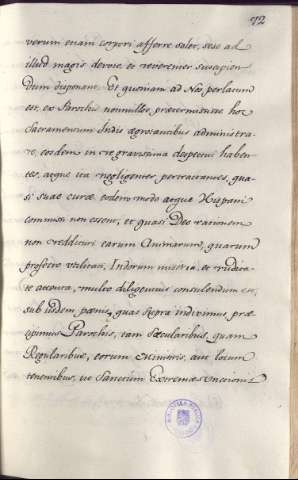 72
verum etiam corpori afferre solet, sese ad
illud magis devote, et reverenter suscipien
dum disponant. Et quoniam ad Nos perlatum
est, ex Parochis nonnullos, prætermittere hoc
Sacramentum Indis ægrotantibus administra-
re, eosdem in re gravissima despectui haben
tes, atque ita negligenter pertractantes, qua-
si suæ curæ eodem modo atque Hispani
commissi non essent, et quasi Deo rationem
non reddituri earum Animarum, quarum
profecto utilitati, Indorum miseria, et rudita-
te attenta, multo diligentius consulendum est,
sub iisdem pœnis, quas supra indiximus præ
cipimus Parochis, tam Sæcularibus, quam
Regularibus, eorum Ministris, aut locum
tenentibus, ut Sanctum Extremæ Unctionis